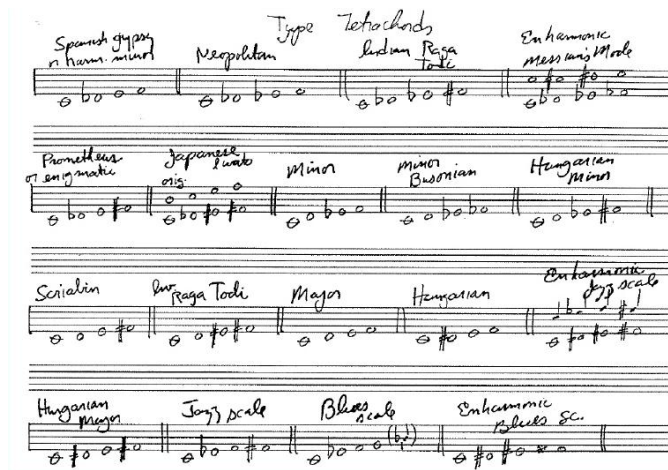 Type Tetrachords
Spanish gypsy
or harm. minor
Neopolitan
Indian Raga
Todi
Enharmonic
Messian's Mode
Prometheus
or enigmatic
Japanese
Iwato
orig.
Minor
Minor
Busonian
Hungarian
Minor
Scriabin
Inv
Raga Todi
Major
Hungarian
Enharmonic
Jazz scale
Hungarian
Major
Jazz scale
Blues
scale
Enharmonic
Blues Sc.